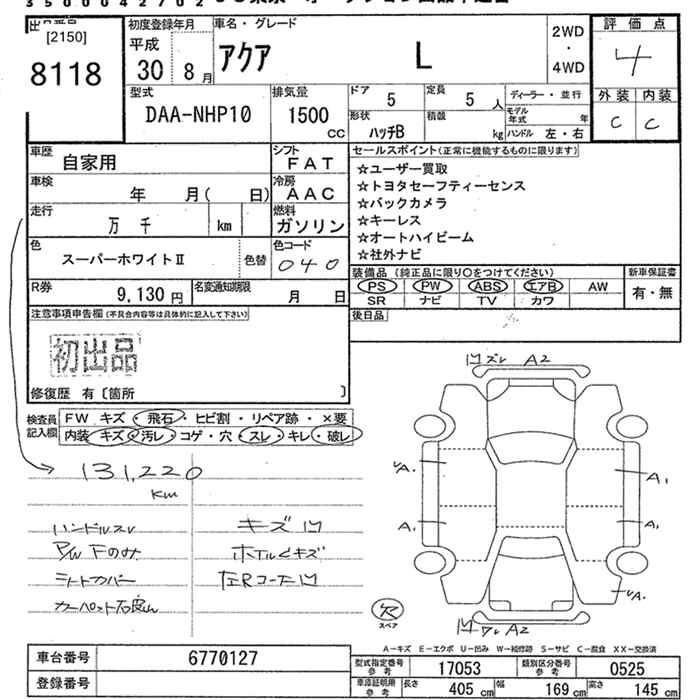 3 5 0 0 0 4 2 7 0 2
[2150]
8118
初度登録年月
平成
30 8月
車名・グレード
アクア L
2WD
・
4WD
評価点
4
外装 内装
C C
型式
DAA-NHP10
排気量
1500
CC
ドア
5
定員
5 人
形状
ハッチB
積載
kg
ディーラー・並行
モデル年式 年
ハンドル 左・右
車歴
自家用
シフト
FAT
車検
年 月( 日)
冷房
AAC
走行
万 千 km
燃料
ガソリン
色
スーパーホワイトⅡ
色替
色コード
040
R券
9,130 円
名変通知期限
月 日
セールスポイント(正常に機能するものに限ります)
☆ユーザー買取
☆トヨタセーフティーセンス
☆バックカメラ
☆キーレス
☆オートハイビーム
☆社外ナビ
装備品 (純正品に限り○をつけてください)
PS PW ABS エアB AW
SR ナビ TV カワ
新車保証書
有・無
後日品
注意事項申告欄(不具合内容等は具体的に記入して下さい)
初出品
修復歴 有〔箇所 〕
検査員記入欄
FW キズ・飛石・ヒビ割・リペア跡・×要
内装 キズ・汚レ・コゲ・穴・スレ・キレ・破レ
131,220
km
ハンドルスレ
P/W Fのみ
シートカバー
キズ凹
ホイルキズ
凹ズレ A2
A1
A1
A1
A1
A1
スペア
凹ワレ A2
A-キズ E-エクボ U-凹み W-補修跡 S-サビ C-腐食 XX-交換済
車台番号
6770127
登録番号
型式指定番号 参考
17053
類別区分番号 参考
0525
車庫証明用 参考
長さ 405 cm
幅 169 cm
高さ 145 cm